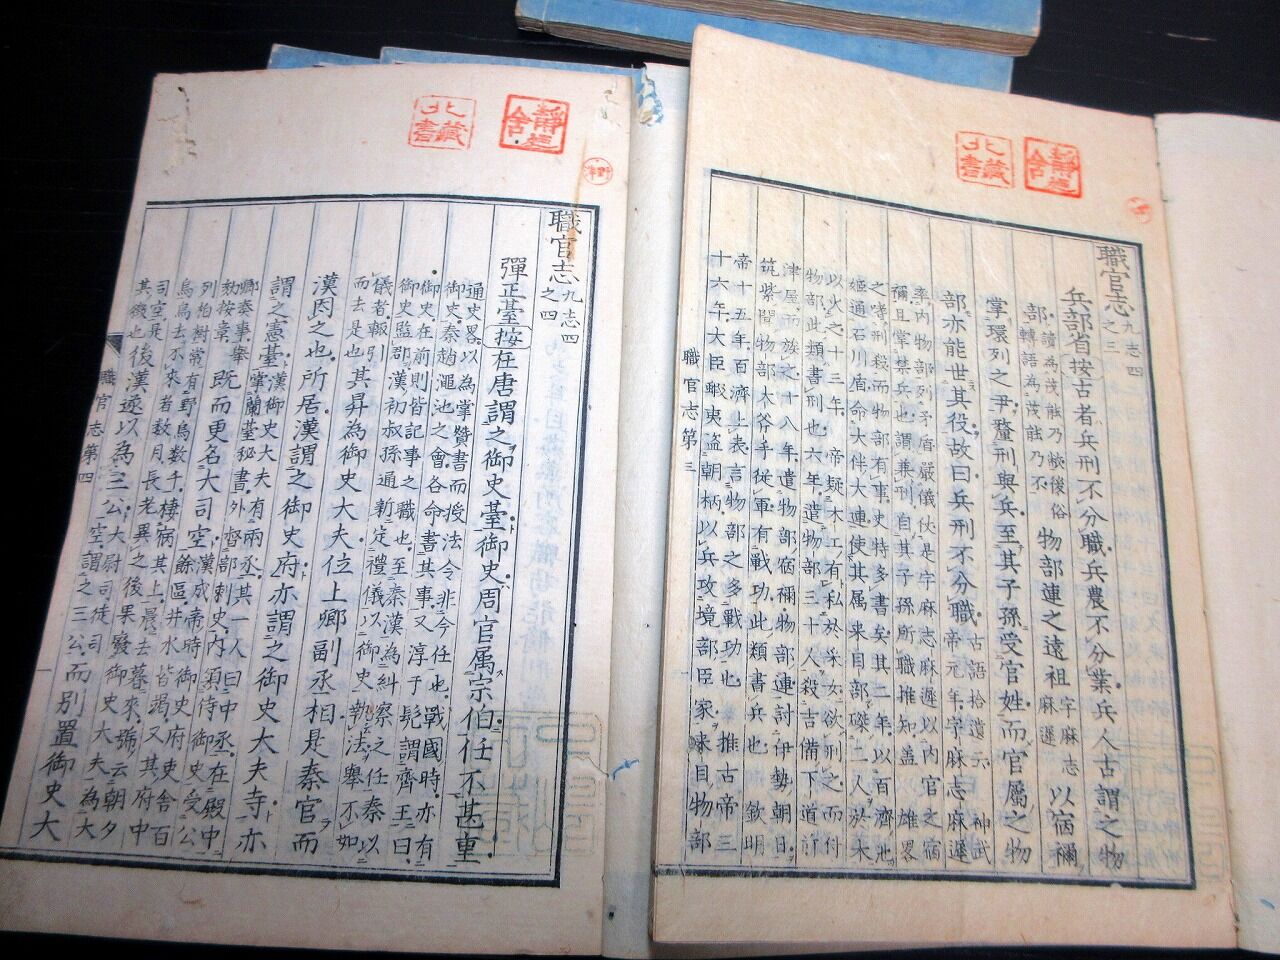 職官志 九志四之三
兵部省 按古者兵刑不分職兵農不分業兵人古謂之物
部
讀為茂能乃餤後俗
轉語為茂能乃不
物部連之遠祖
宇麻志
麻遲
以宿禰
掌環列之尹釐刑與兵至其子孫受官姓而官屬之物
部亦能世其役故曰兵刑不分職
古語拾遺云神武
帝元年宇麻志麻遲
率内物部列矛盾嚴儀伏是宇麻志麻遲以内官之宿
禰且掌禁兵也謂兼刑自其子孫所職推知盖以雄畧
之嗜刑殺而物部有事史特多書矣其二年以百濟池
姫通石川盾命大伴大連使其属来目部磔二人於木
以火之十三年帝疑木工有私於采女欲刑之而付
物部此類書刑也六年遣物部三十人殺吉備下道前
津屋而族之十八年遣物部宿禰物部連討伊勢朝日
筑紫聞物部大斧手從軍有戰功此類書兵也欽明
帝十五年百濟上表言物部之多戰功也推古帝三
十六年大臣蝦夷盗朝柄以兵攻境部臣家来目物部
職官志第三
職官志 九志四之四
彈正臺 按在唐謂之御史臺御史周官属宗伯任不甚重
通史畧以為掌贊書而授法令非今任也戰國時亦有
御史秦趙澠池之會各命書其事又淳于髡謂齊王曰
御史在前則皆記事之職也至秦漢為糾察之任秦以
御史監郡漢初叔孫通新定禮儀以御史執法舉不如
儀者輙引
而去是也
其昇為御史大夫位上卿副丞相是秦官而
漢因之也所居漢謂之御史府亦謂之御史大夫寺亦
謂之憲臺
漢御史大夫有兩丞其一人曰中丞在殿中
掌蘭臺秘書外督部刺史内須侍御史受公
卿奏事舉
劾按章
既而更名大司空
漢成帝時御史府吏舎百
餘區井水皆竭又其府中
列柏樹常有野烏數千棲宿其上晨去暮來號云朝夕
烏烏去不來者数月長老異之後果廢御史大夫為大
司空是
其徴也
後漢遂以為三公
大尉司徒司
空謂之三公
而別置御史大
職官志第四